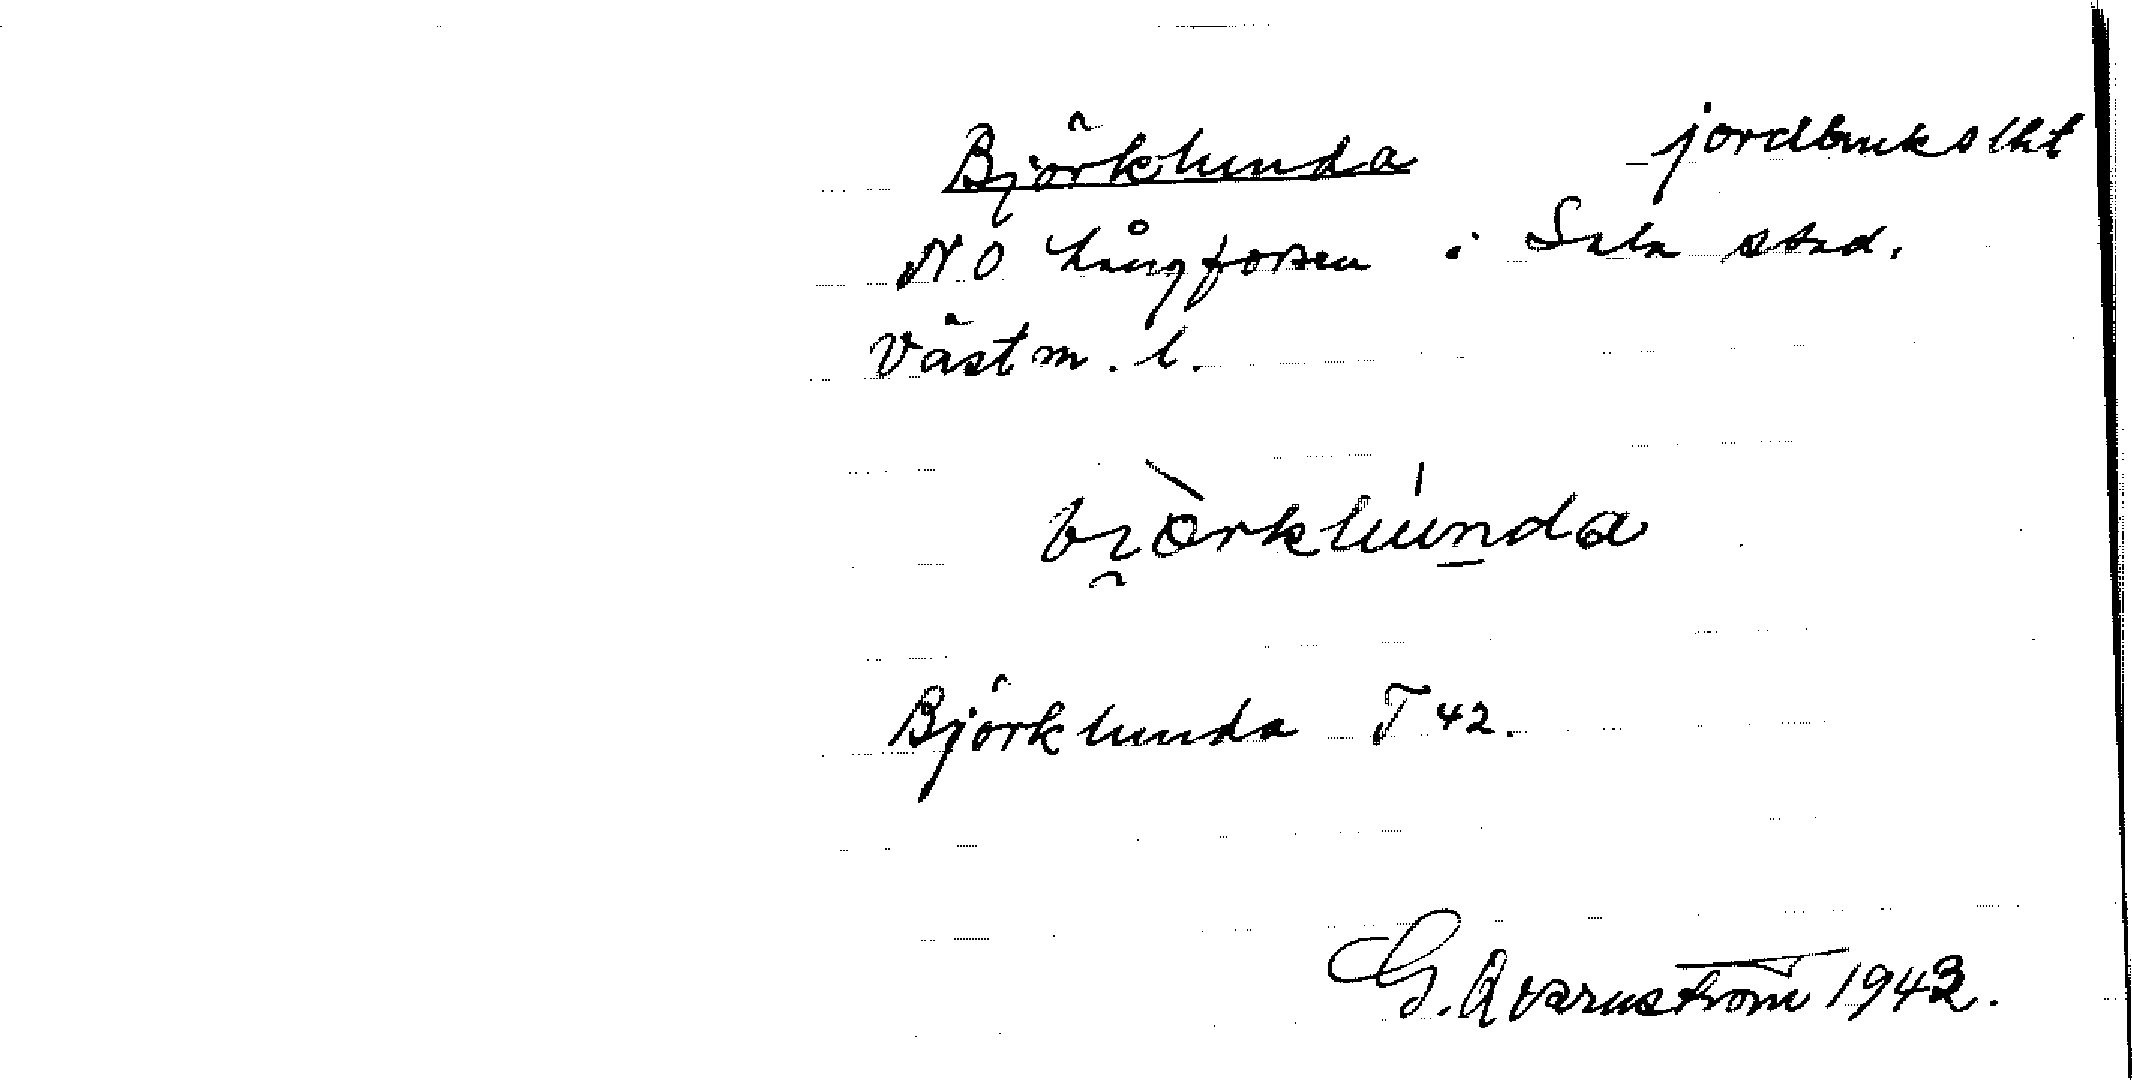 Björklunda jordbrukslht
NO Långforsen i Sala stad.
Västm. l.
bi̯òrklúnda
Björklunda T 42.
G. Qvarnström 1943.